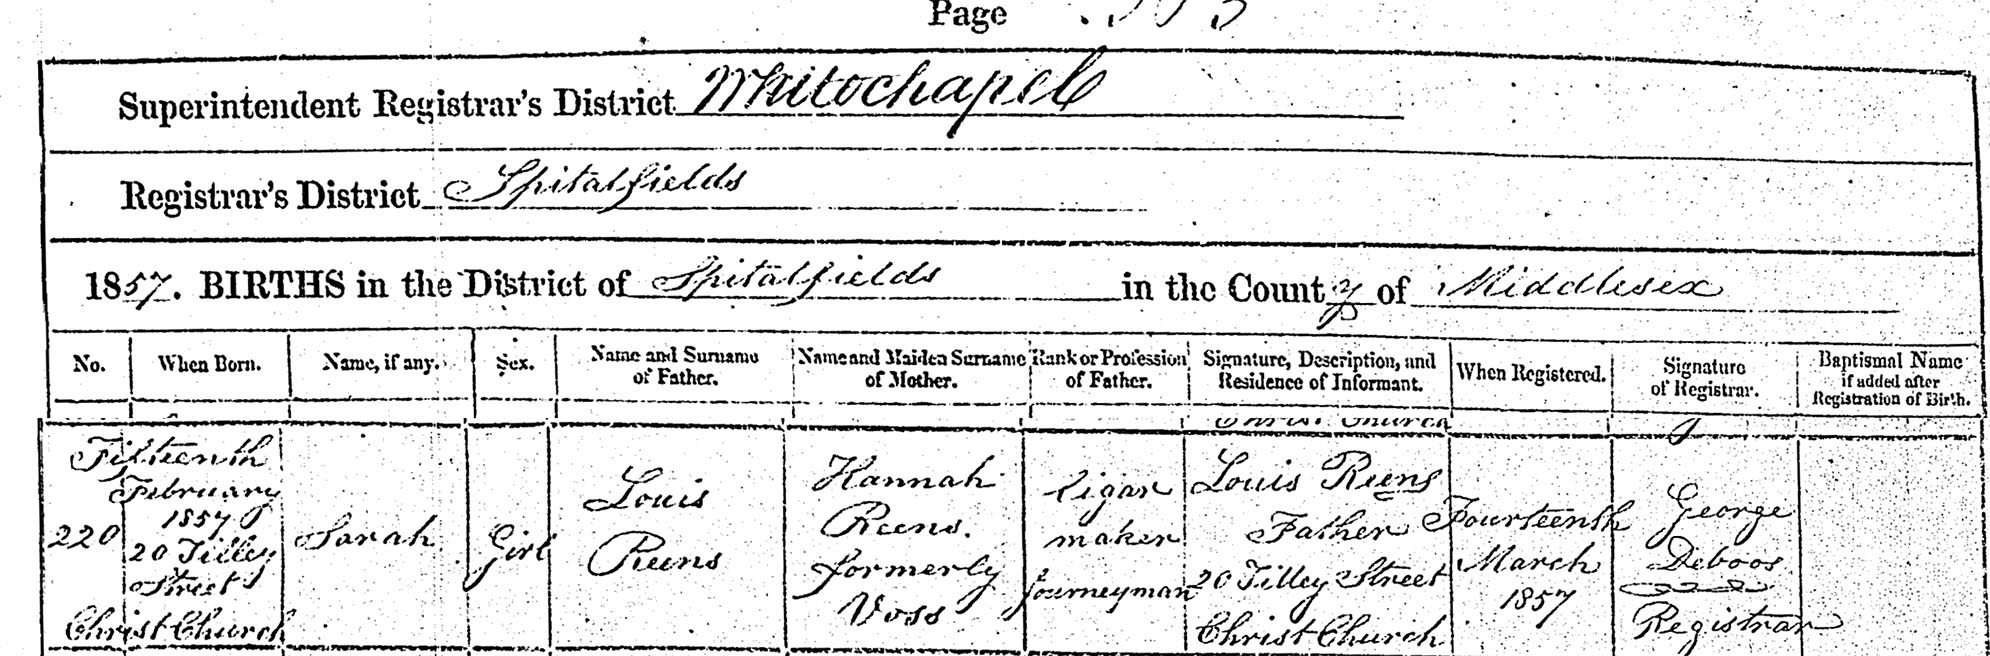 Page
Superintendent Registrar's District Whitechapel
Registrar's District Spitalfields
1857. BIRTHS in the District of Spitalfields in the County of Middlesex
No.
When Born.
Name, if any.
Sex.
Name and Surname
of Father.
Name and Maiden Surname
of Mother.
Rank or Profession
of Father.
Signature, Description, and
Residence of Informant.
When Registered.
Signature
of Registrar.
Baptismal Name
if added after
Registration of Birth.
220
Fifteenth
February
1857
20 Tilley
Street
Christ Church
Sarah
Girl
Louis
Reens
Hannah
Reens.
formerly
Voss
Cigar
maker
Journeyman
Christ Church
Louis Reens
Father
20 Tilley Street
Christ Church
Fourteenth
March
1857
George
Deboos
Registrar